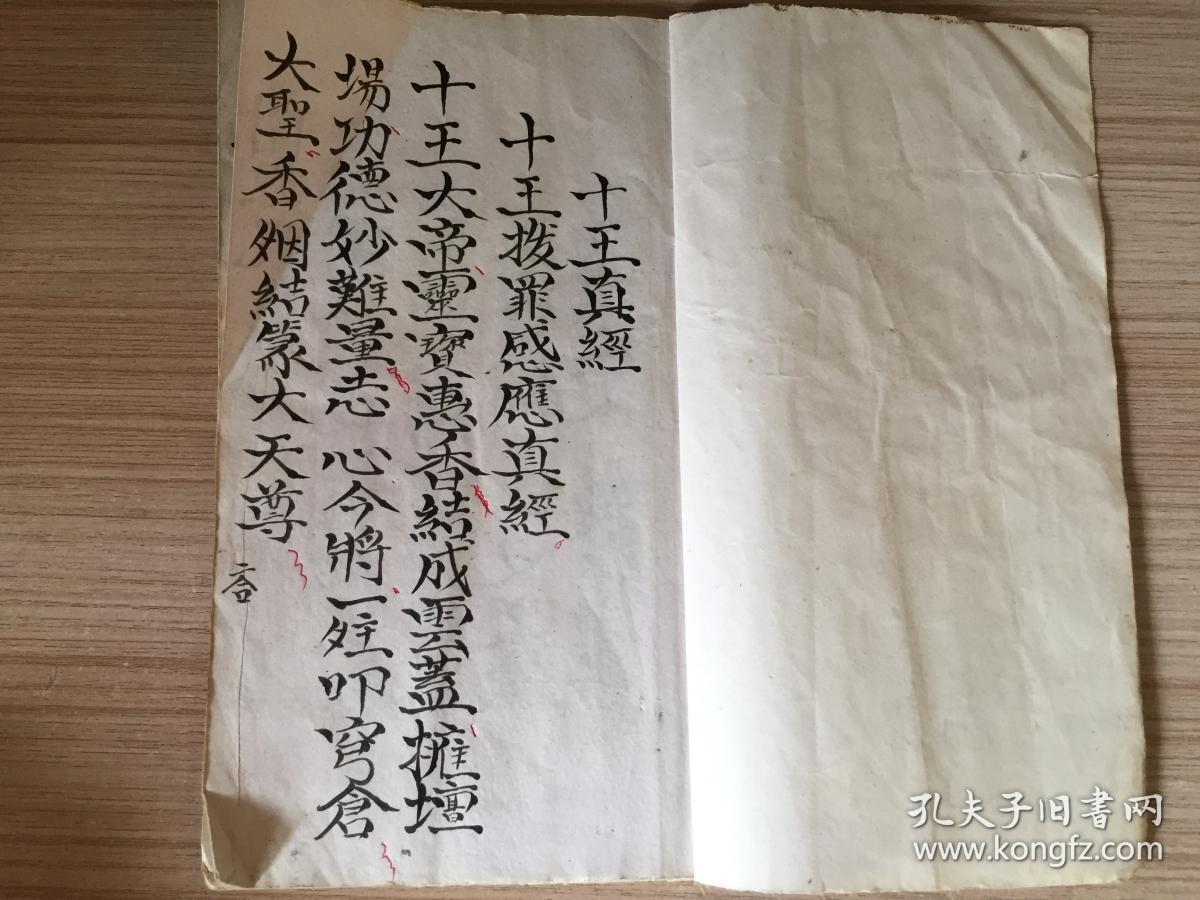 十王真經
十王拔罪感應真經
十王大帝靈寶惠香結成雲蓋擁壇
場功德妙難量志心今將一炷叩穹倉
大聖香烟結篆大天尊
孔夫子旧書网
www.kongfz.com